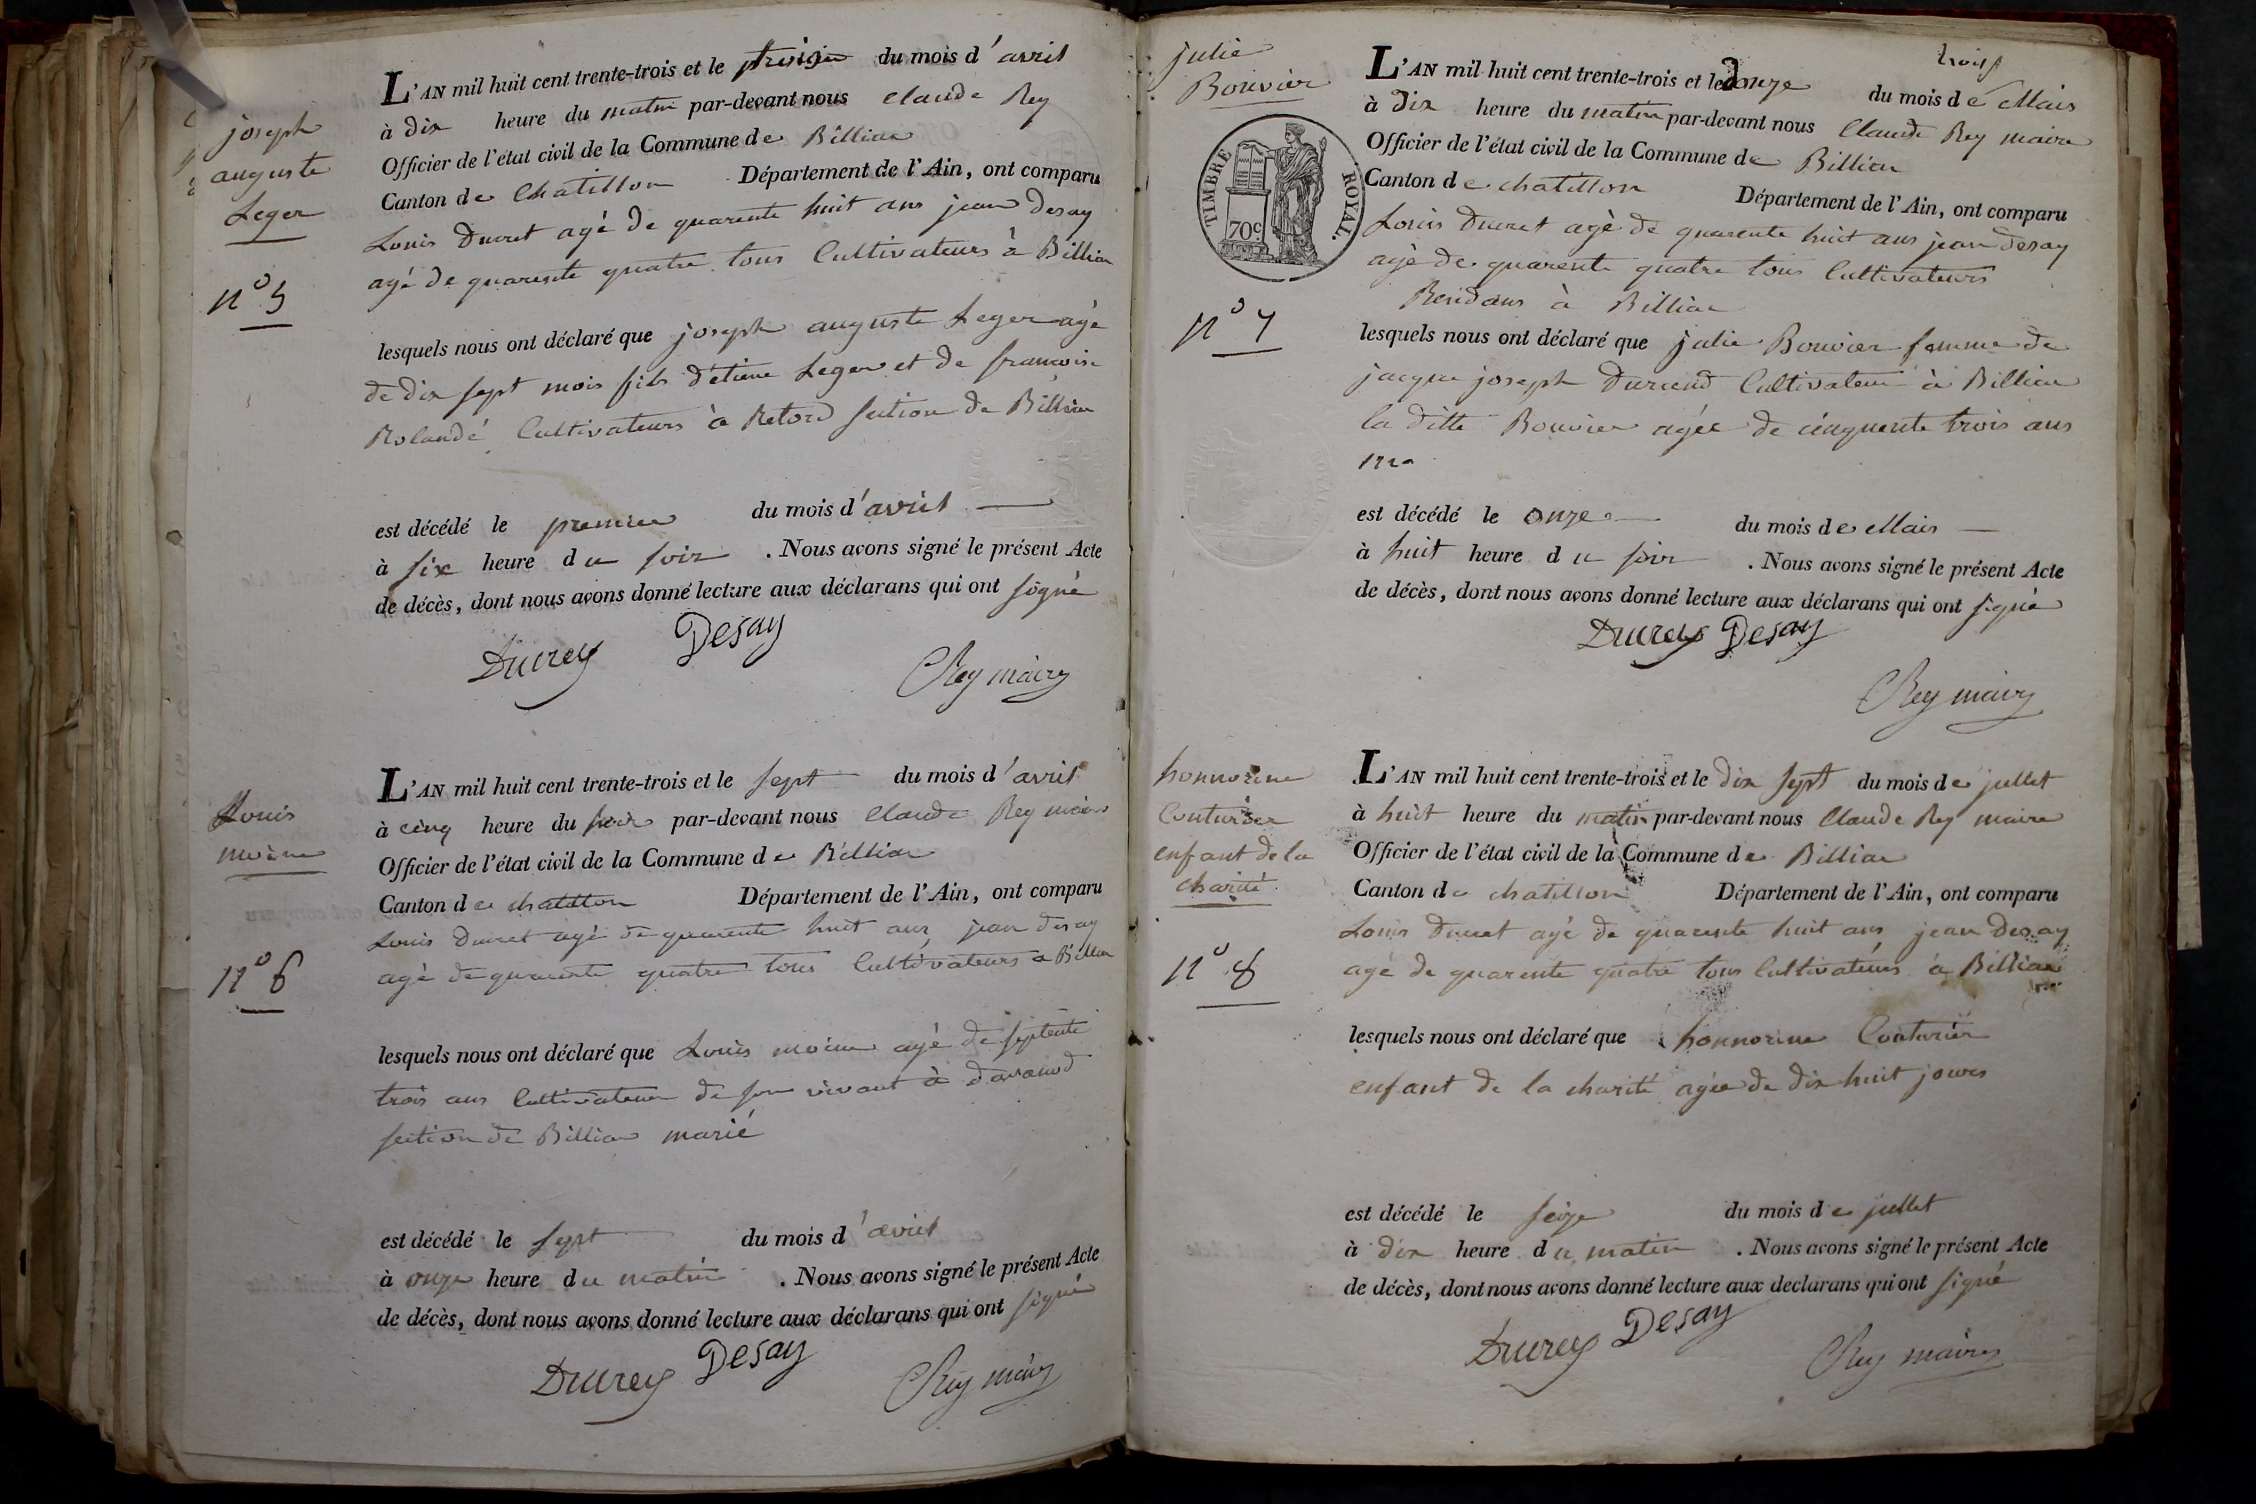 joseph
auguste
Leger
n° 5
L'AN mil huit cent trente-trois et le du mois d'avril
à dix heure du matin par-devant nous Claude Rey
Officier de l'état civil de la Commune de Billiat
Canton de Chatillon Département de l'Ain, ont comparu
Louis Ducret agé de quarente huit ans jean desay
agé de quarente quatre tous Cultivateurs à Billiat
lesquels nous ont déclaré que joseph auguste Leger agé
de dix sept mois fils d'étiene Leger et de francoise
Rolandé Cultivateurs à Retord section de Billiat
est décédé le premier du mois d'avril
à six heure du soir . Nous avons signé le présent Acte
de décès, dont nous avons donné lecture aux déclarans qui ont signé
Ducrey Desay
Rey maire
Louis
moine
n° 6
L'AN mil huit cent trente-trois et le sept du mois d'avril
à cinq heure du soir par-devant nous Claude Rey maire
Officier de l'état civil de la Commune de Billiat
Canton de chatillon Département de l'Ain, ont comparu
Louis Ducret agé de quarente huit ans jean desay
agé de quarente quatre tous Cultivateurs à Billiat
lesquels nous ont déclaré que Louis moine agé de septente
trois ans Cultivateur de son vivant à davanod
section de Billiat marié
est décédé le sept du mois d'avril
à onze heure du matin . Nous avons signé le présent Acte
de décès, dont nous avons donné lecture aux déclarans qui ont signé
Ducrey Desay
Rey maire
julie
Bouvier
TIMBRE ROYAL.
70c
n° 7
L'AN mil huit cent trente-trois et le donze du mois de Mais
à Dix heure du matin par-devant nous Claude Rey maire
Officier de l'état civil de la Commune de Billiat
Canton de chatillon Département de l'Ain, ont comparu
Louis Ducret agé de quarente huit ans jean desay
agé de quarente quatre tous Cultivateurs
Residans à Billiat
lesquels nous ont déclaré que julie Bouvier femme de
jacque joseph Durand Cultivateur à Billiat
la ditte Bouvier agée de cinquente trois ans
est décédé le onze du mois de Mais
à huit heure du soir . Nous avons signé le présent Acte
de décès, dont nous avons donné lecture aux déclarans qui ont signé
Ducrey Desay
Rey maire
honnorine
Couturier
enfant de la
charité
n° 8
L'AN mil huit cent trente-trois et le dix sept du mois de jullet
à huit heure du matin par-devant nous Claude Rey maire
Officier de l'état civil de la Commune de Billiat
Canton de chatillon Département de l'Ain, ont comparu
Louis Ducret agé de quarente huit ans jean Desay
agé de quarente quatre tous Cultivateurs à Billiat
lesquels nous ont déclaré que honnorine Couturier
enfant de la charité agée de dix huit jours
est décédé le seize du mois de jullet
à dix heure du matin . Nous avons signé le présent Acte
de décès, dont nous avons donné lecture aux declarans qui ont signé
Ducrey Desay
Rey maire